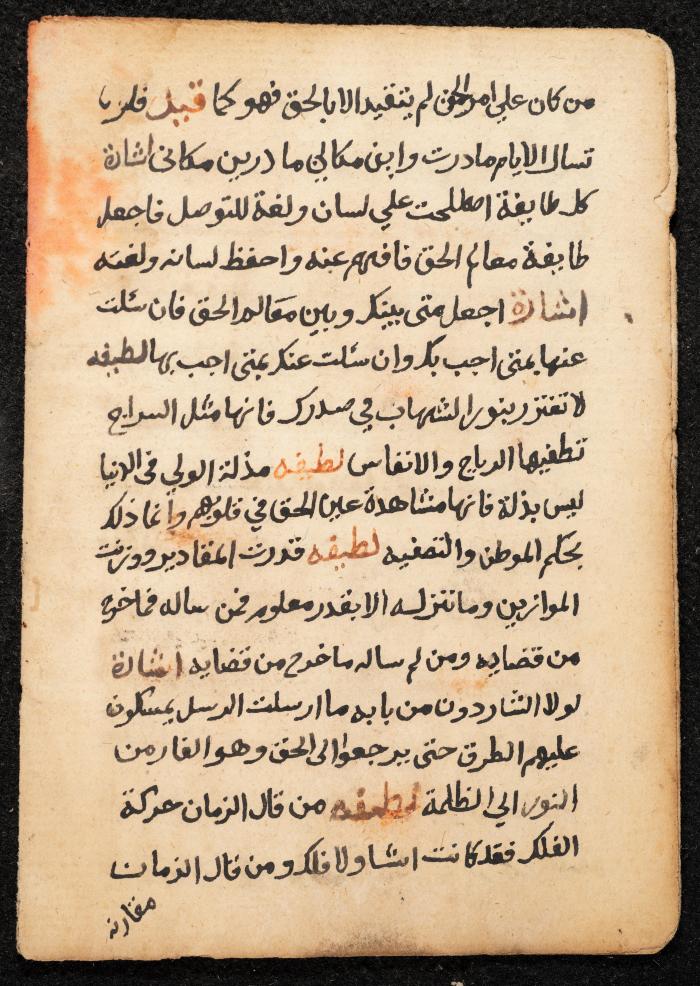 من كان علي امر الحق لم يتقيد الا بالحق فهو كما قيل فلو
تسال الايام مادرت واين مكاني مادرين مكاني اشارة
كل طايفة اصطلحت علي لسان ولغة للتوصل فاجعل
طايفة معالم الحق فافهم عنه واحفظ لسانه ولغته
اشارة اجعل متي بينك وبين معالم الحق فان سئلت
عنها بمتي اجب بك وان سئلت عنك بمتي اجب بها لطيفه
لا تغتر بنور الشهاب في صدرك فانها مثل السراج
تطفيها الرياح والانفاس لطيفه مذلة الولي في الدنيا
ليس بذلة فانها مشاهدة عين الحق في قلوبهم وانما ذلك
بحكم الموطن والتصفيه لطيفه قدرت المقادير ووزنت
الموازين وما تنزله الا بقدر معلوم فمن ساله فما خرج
من قضايه ومن لم ساله ما خرج من قضايه اشارة
لولا الشاردون من بابه ما ارسلت الرسل يمسكون
عليهم الطرق حتى يرجعوا الى الحق وهو الفار من
النور الي الظلمة لطيفه من قال الزمان حركة
الفلك فقد كانت اشيا ولا فلك ومن قال الزمان
مقارنه